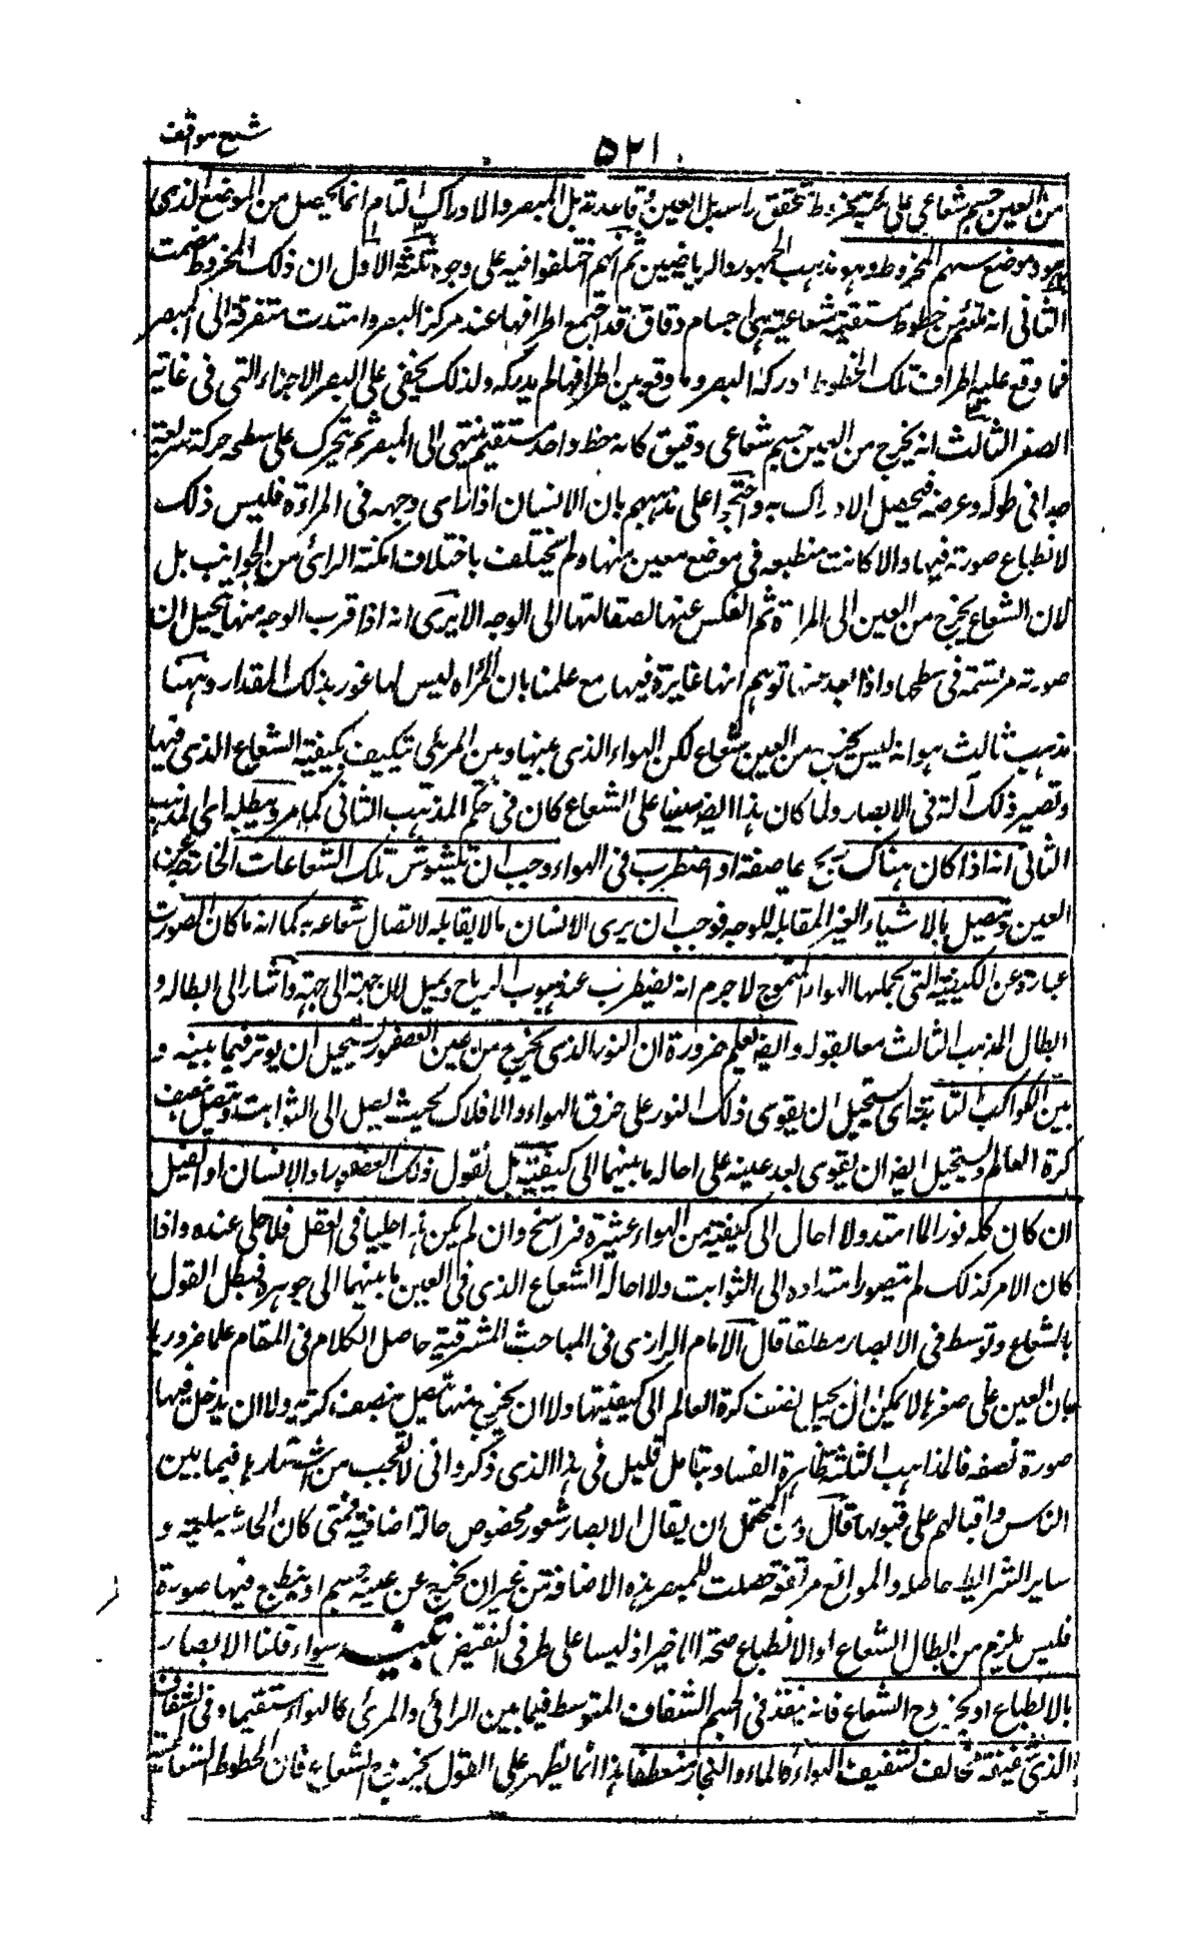 شرح مواقف
٥٢١
من العين جسم شعاعي على هيئة مخروط تحقق راسه يلي العين و قاعدته يلي المبصر والادراك التام انما يحصل من الموضع الذى
هو موضع سهم المخروط وهو مذهب الجمهور والرياضيين ثم انهم اختلفوا فيه على وجوه ثلثة الاول ان ذلك المخروط مصمت
الثانى انه ملتئم من خطوط مستقيمة شعاعية هى اجسام دقاق قد اجتمع اطرافها عند مركز البصر وامتدت متفرقة الى المبصر
فما وقع عليه اطراف تلك الخطوط ادركه البصر وما وقع بين اطرافها لم يدركه ولذلك يخفى على البصر الاجزاء التى فى غاية
الصغر الثالث انه يخرج من العين جسم شعاعى دقيق كانه خط واحد مستقيم ينتهى الى المبصر ثم يتحرك على سطحه حركة سريعة
جدا فى طوله وعرضه فيحصل الادراك به واحتجوا على مذهبهم بان الانسان اذا راى وجهه فى المراة فليس ذلك
لانطباع صورته فيها والا كانت منطبعه فى موضع معين منها ولم يختلف باختلاف امكنة الرائى من الجوانب بل
لان الشعاع يخرج من العين الى المراة ثم انعكس عنها لصقالتها الى الوجه الا يرى انه اذا قرب الوجه منها يخيل ان
صورته مرتسمة فى سطحها واذا بعد عنها توهم انها غايرة فيها مع علمنا بان المراه ليس لها غور بذلك المقدار وههنا
مذهب ثالث هو انه ليس يخرج من العين شعاع لكن الهواء الذى بينها وبين المرئى تيكيف بكيفية الشعاع الذى فيها
وتصير ذلك آلة فى الابصار ولما كان هذا ايض مبنيا على الشعاع كان فى حكم المذهب الثانى كما مر ويبطله اى المذهب
الثانى انه اذا كان هناك ريح عاصفة او اضطرب فى الهواء وجب ان تتشوش تلك الشعاعات الخارجة عن
العين وتتصل بالاشياء الغير المقابلة للوجه فوجب ان يرى الانسان ما لا يقابله لاتصال شعاعه به كما انه ما كان الصوت
عبارة عن الكيفية التى يحملها الهواء المتموج لا جرم انه يضطرب عند هبوب الرياح ويميل من جهة الى جهة واشار الى ابطاله و
ابطال المذهب الثالث معا بقوله وايض نعلم ضرورة ان النور الذى يخرج من عين العصفور يستحيل ان يوثر فيما بينه و
بين الكواكب الثابتة اى يستحيل ان يقوى ذلك النور على خرق الهواء والافلاك بحيث يصل الى الثوابت ويتصل بنصف
كرة العالم ويستحيل ايض ان يقوى بعد عينه على احاله ما بينهما الى كيفيته بل نقول ذلك العصفور او الانسان او الفيل
ان كان كله نورا لما امتد ولا احال الى كيفيته من الهواء عشرة فراسخ وان لم يكن هذا جليا فى العقل فلا جلى عنده واذا
كان الامر كذلك لم يتصور امتداده الى الثوابت ولا احالة الشعاع الذى فى العين ما بينهما الى جوهره فبطل القول
بالشعاع وتوسطه فى الابصار مطلقا قال الامام الرازى فى المباحث المشرقية حاصل الكلام فى المقام علما ضروريا
بان العين على صغرها لا يمكن ان يحيل نصف كرة العالم الى كيفيتها ولا ان يخرج منها ما يتصل بنصف كرته ولا ان يدخل فيها
صورة نصفه فالمذاهب الثلثة ظاهرة الفساد بتامل قليل فى هذا الذى ذكروا فى لا تعجب من اشتهارها فيما بين
الناس واقبالهم على قبولها قال ومن المحتمل ان يقال الابصار شعور مخصوص حالة اضافية فمتى كان الحاسة سليمة و
ساير الشرائط حاصله والموانع مرتفعة حصلت للمبصر هذه الاضافة من غير ان يخرج عن عينه جسم او ينطبع فيها صورة
فليس يلزم من ابطال الشعاع او الانطباع صحة الاخير اذ ليسا على طرفى النقيض تنبيه سواء قلنا الابصار
بالانطباع او بخروج الشعاع فانه ينفذ فى الجسم الشفاف المتوسط فيما بين الرائى والمرئى كالهواء مستقيما وفى الشفاف
الذى شفيفه مخالف لشفيف الهواء كالماء والبخار منعطفا هذا انما يظهر على القول بخروج الشعاع فان الخطوط الشعاعية